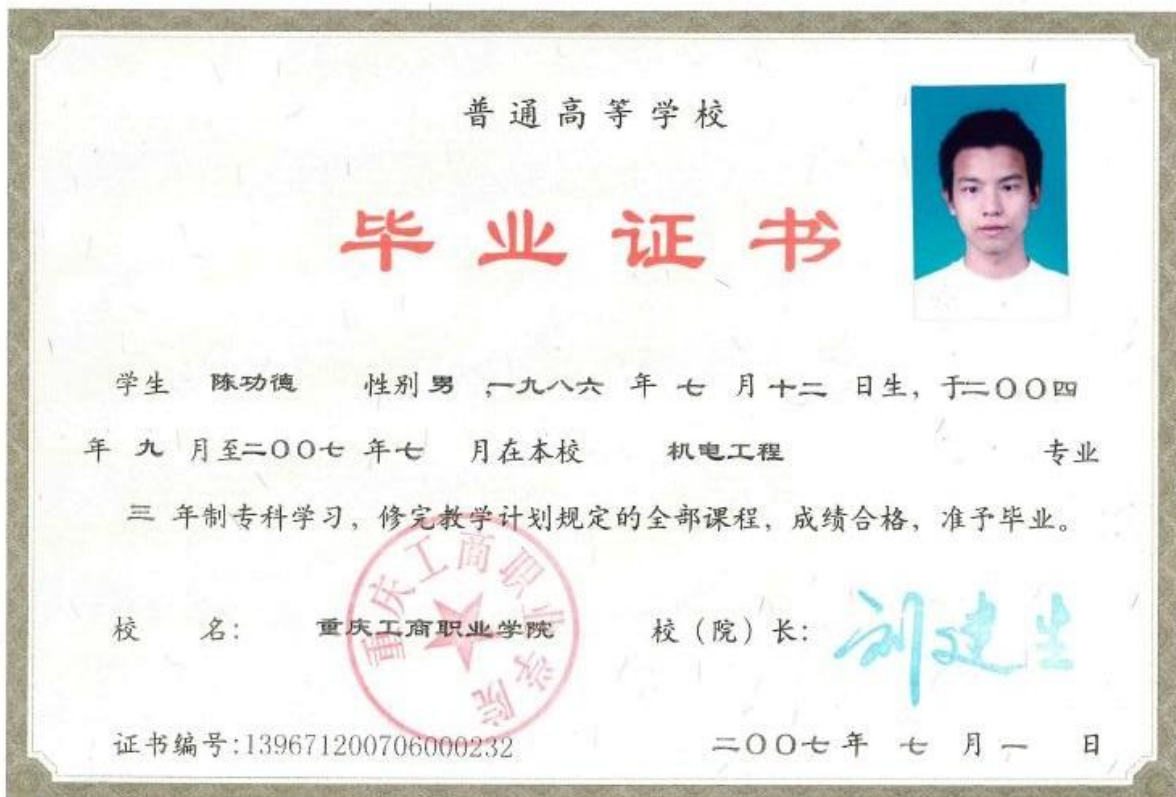 普通高等学校
毕业证书
学生 陈功德 性别 男 ,一九八六 年 七 月 十二 日生，于二〇〇四
年 九 月至二〇〇七 年 七 月在本校 机电工程 专业
三 年制专科学习，修完教学计划规定的全部课程，成绩合格，准予毕业。
校 名： 重庆工商职业学院 校（院）长： 刘建生
重庆工商职业学院
证书编号:139671200706000232 二〇〇七 年 七 月 一 日